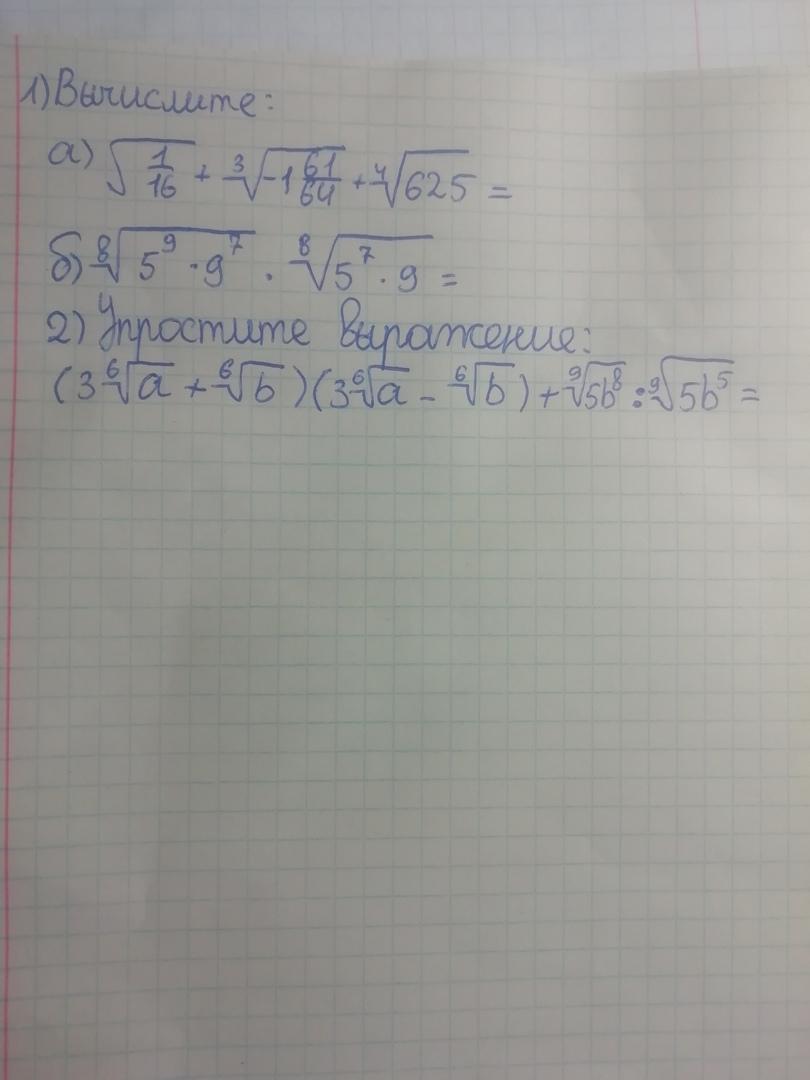 1) Вычислите:
а) √(1/16) + ∛(-1 61/64) + ∜625 =
б) ⁸√(5⁹ · 9⁷) · ⁸√(5⁷ · 9) =
2) Упростите выражение:
(3 ⁶√a + ⁶√b)(3 ⁶√a - ⁶√b) + ⁹√(5b⁸) : ⁹√(5b⁵) =